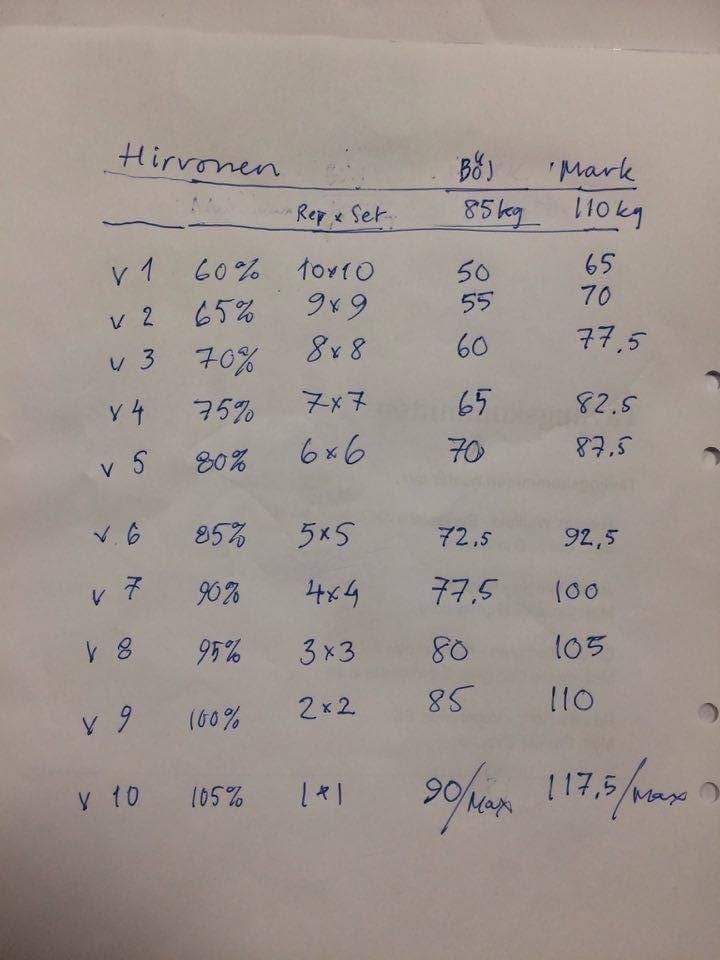 Hirvonen Böj Mark
Rep x Set 85kg 110kg
v 1 60% 10x10 50 65
v 2 65% 9x9 55 70
v 3 70% 8x8 60 77.5
v 4 75% 7x7 65 82.5
v 5 80% 6x6 70 87.5
v. 6 85% 5x5 72,5 92,5
v 7 90% 4x4 77.5 100
v 8 95% 3x3 80 105
v 9 100% 2x2 85 110
v 10 105% 1x1 90/Max 117,5/max